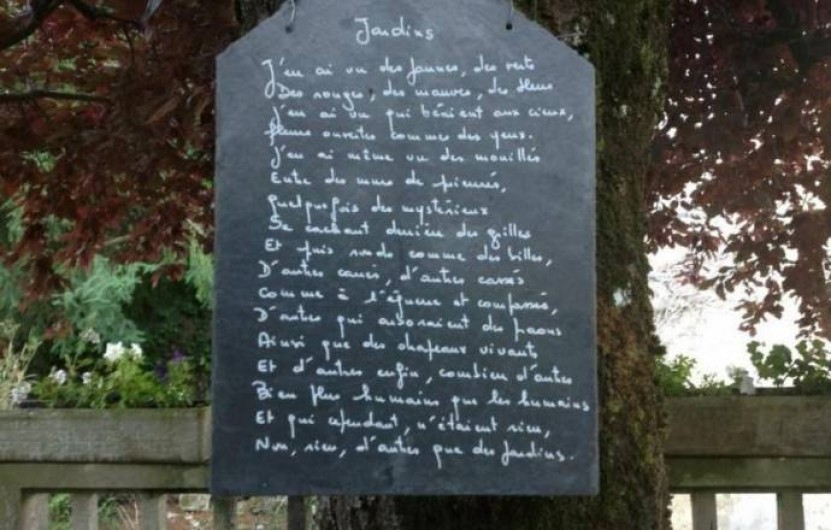 Jardins
J'en ai vu des jaunes, des verts
Des rouges, des mauves, des bleus
J'en ai vu qui bénient aux cieux,
fleurs ouvertes commes des yeux.
J'en ai même vu des mouillés
Entre des murs de pierres,
quelquefois des mystérieux
Se cachant derrière des grilles
Et puis ronds comme des billes,
D'autres carrés, d'autres cassés
Comme à l'équerre et compassés,
D'autres qui arboraient des paons
Ainsi que des chapeaux vivants
Et d'autres enfin, combien d'autres
Bien plus humains que les humains
Et qui cependant, n'étaient rien,
Non, rien, d'autres que des jardins.